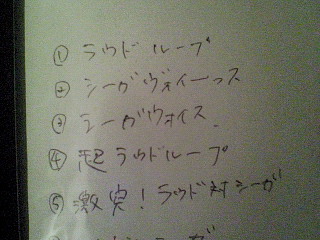 ① ラウドループ
② シーガヴォイーっス
③ シーガヴォイス.
④ 超ラウドループ
⑤ 激突!ラウド対シーガ